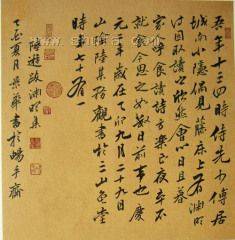 吾年十三四時侍先少傅居
城南小隱偶見藤床上有淵明
詩因取讀之欣然會心日且暮
家人呼食讀詩方樂至夜卒不
就食今思之如數日前事也慶
元元年歲在乙卯九月二十九日
山陰陸某務觀書於三山龜堂
時年七十有一
陸游跋淵明集
夏月
書於暢平齋